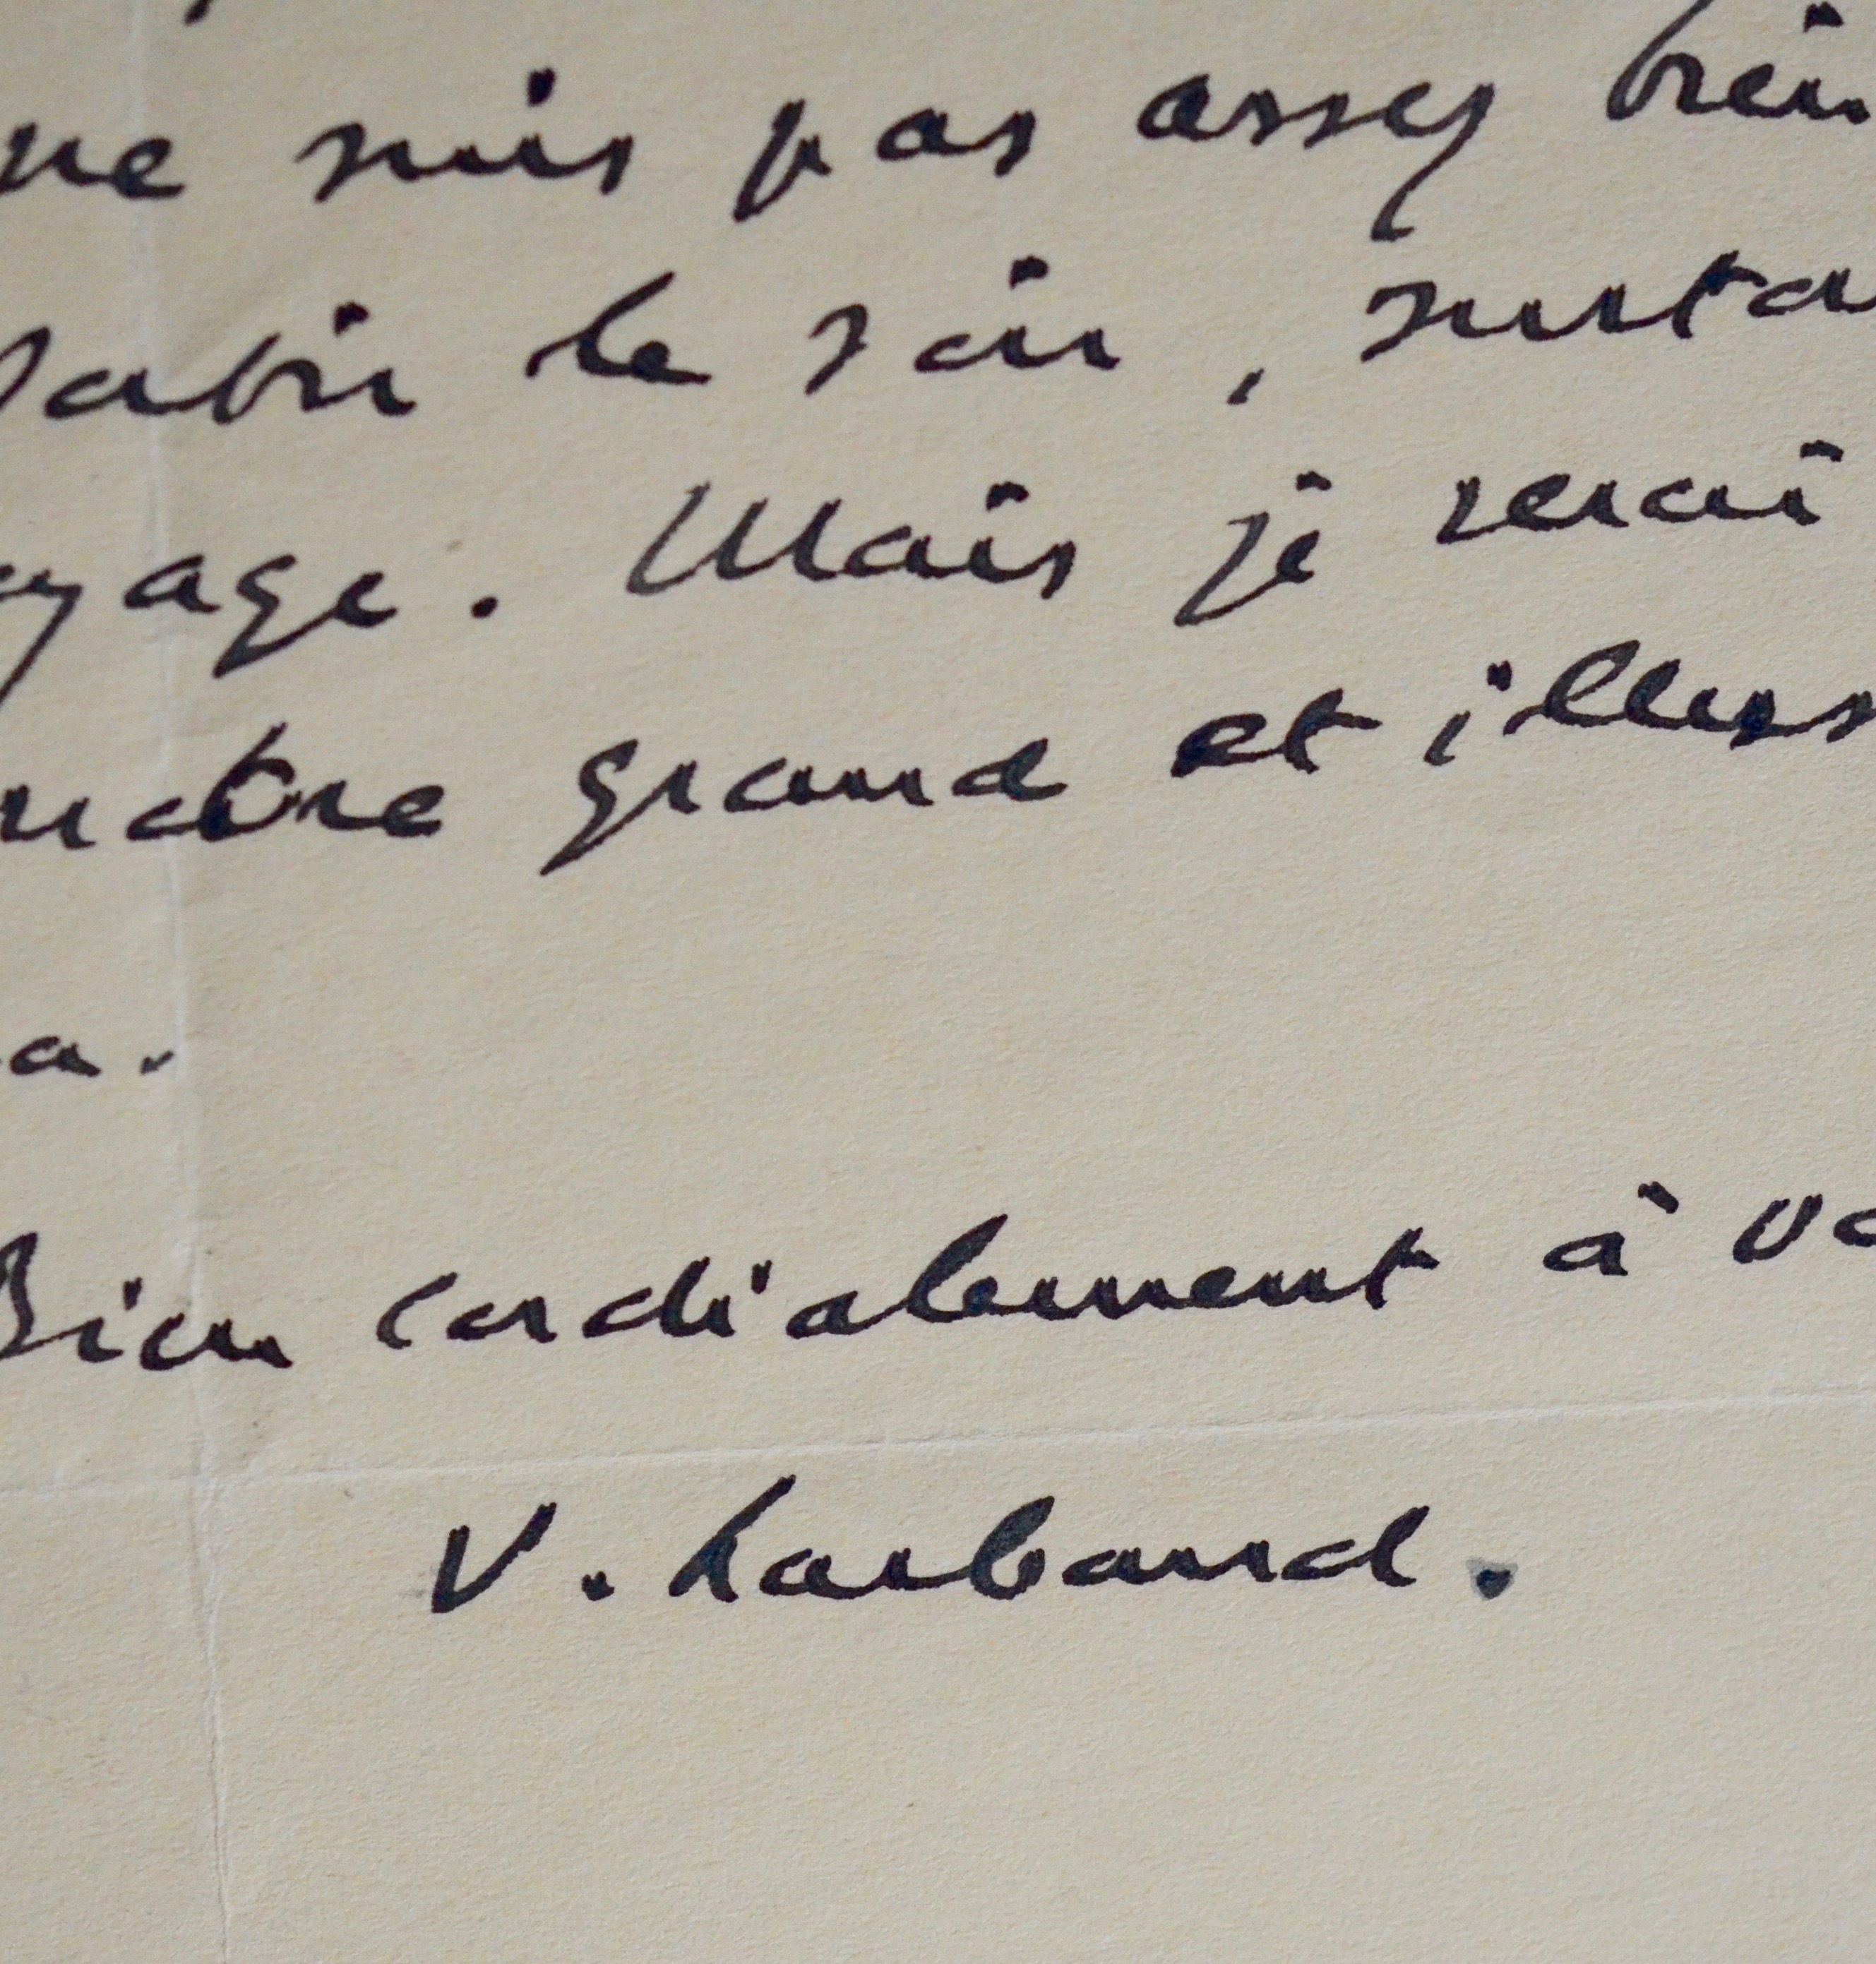 ne suis pas assez bien
sabri le soir, surto
yage. Mais je serai
notre grand et illus
a.
Bien cordialement à vo
V. Larbaud.